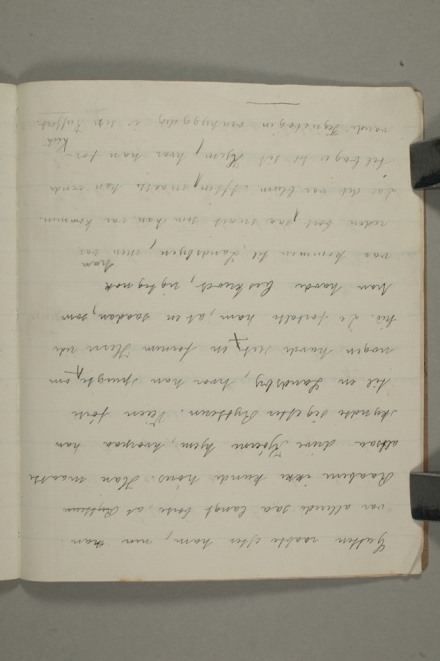 Gutten raabte efter ham, men han
var allerede saa langt borte, at Rytteren
Raabene ikke kunde høres. Han maatte
altsaa drive Kjøerne hjem, hvorpaa han
skyndte sig efter Rytteren. Veien førte
til en Landsby, hvor han spurgte, om
nogen havde seet en fornem Herre ride
hid. De fortalte ham, at en saadan, som
han havde beskrevet, rigtignok
var kommen til Landsbyen, men han var
reden bort, saa snart som han var kommen.
Da det var blevn Aften, maatte han vende
tilbage til sit Hjem, hvor han for-
varede Tegnebogen omhyggelig i sin Kiste